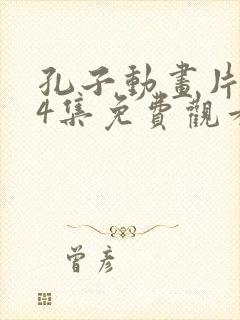 孔子動畫片
4集免費觀
曾彥